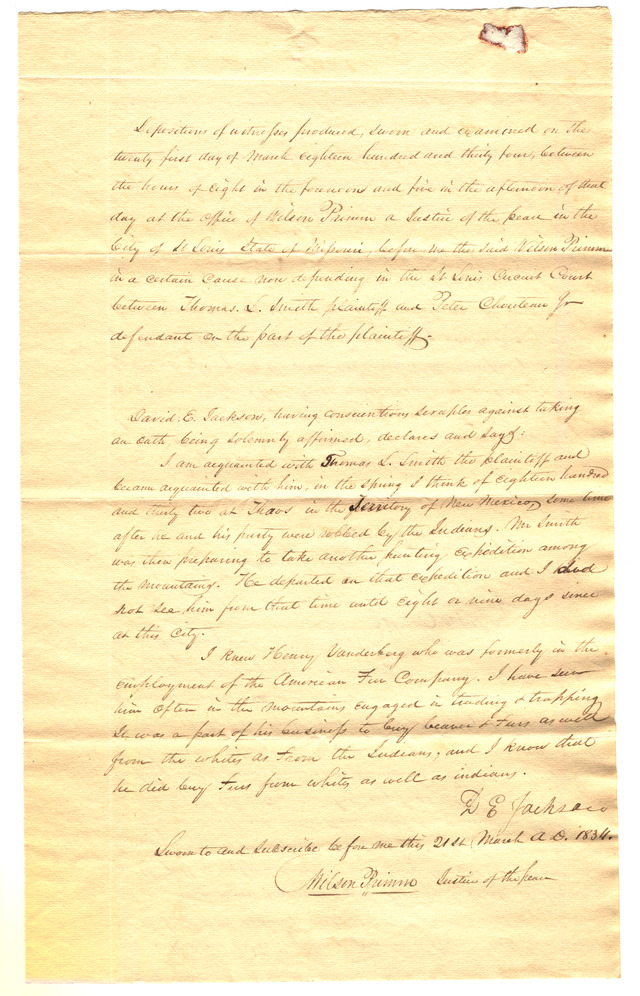 Depositions of witnesses produced, sworn and examined on the
twenty first day of March eighteen hundred and thirty four, between
the hours of eight in the forenoons and five in the afternoon of that
day at the office of Wilson Primm a Justice of the peace in the
City of St Louis State of Missouri, before me the said Wilson Primm
in a certain cause now depending in the St Louis Circuit Court
between Thomas. L. Smith plaintiff and Peter Chouteau Jr
defendant on the part of the plaintiff.
David. E. Jackson, having conscientious scruples against taking
an oath being solemnly affirmed, declares and says:
I am acquainted with Thomas L. Smith the plaintiff and
became acquainted with him, in the spring I think of eighteen hundred
and thirty two at Thaos in the Territory of New Mexico, some time
after he and his party were robbed by the Indians. Mr Smith
was then preparing to take another hunting expedition among
the mountains. He departed on that expedition and I did
not see him from that time until eight or nine days since
at this City.
I knew Henry Vanderberg who was formerly in the
employment of the American Fur Company. I have seen
him often in the mountains engaged in trading & trapping
It was a part of his business to buy beaver & Furs as well
from the whites as From the Indians, and I know that
he did buy Furs from whites as well as indians.
D E Jackson
Sworn to and subscribe before me this 21st March A.D. 1834.
Wilson Primm Justice of the peace